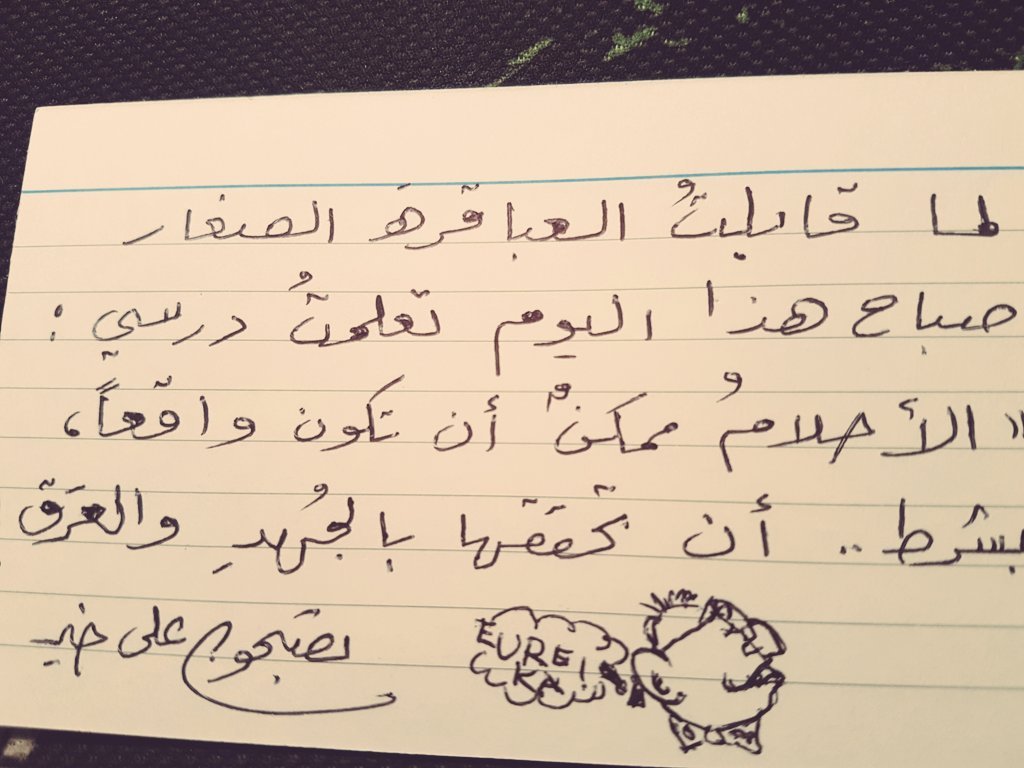 لما قابلتُ العباقرهَ الصغار
صباح هذا اليوم تعلمتُ درسي :
" الأحلامُ ممكنٌ أن تكون واقعاً،
بشرط .. أن تحققها بالجُهدِ والعَرق
تصبحون على خير
EURE
KA!